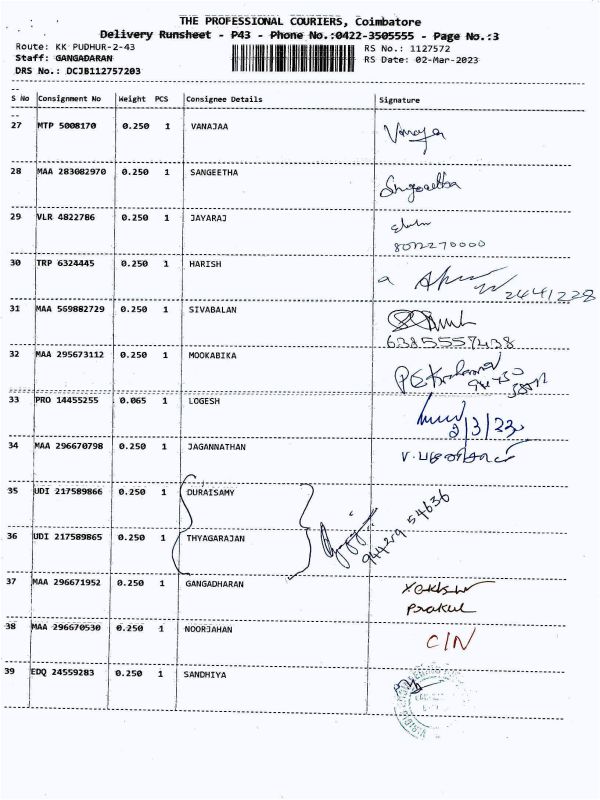 THE PROFESSIONAL COURIERS, Coimbatore
Delivery Runsheet - P43 - Phone No.:0422-3505555 - Page No.:3
Route: KK PUDHUR-2-43 RS No.: 1127572
Staff: GANGADARAN RS Date: 02-Mar-2023
DRS No.: DCJB112757203
S No Consignment No Weight PCS Consignee Details Signature
27 MTP 5008170 0.250 1 VANAJAA Vanaja
28 MAA 283082970 0.250 1 SANGEETHA
29 VLR 4822786 0.250 1 JAYARAJ
8072270000
30 TRP 6324445 0.250 1 HARISH
2441228
31 MAA 569882729 0.250 1 SIVABALAN
6385557438
32 MAA 295673112 0.250 1 MOOKABIKA
33 PRO 14455255 0.065 1 LOGESH
2/3/23
34 MAA 296670798 0.250 1 JAGANNATHAN
35 UDI 217589866 0.250 1 DURAISAMY
94429 54636
36 UDI 217589865 0.250 1 THYAGARAJAN
37 MAA 296671952 0.250 1 GANGADHARAN
Prakul
38 MAA 296670530 0.250 1 NOORJAHAN C/N
39 EDQ 24559283 0.250 1 SANDHIYA